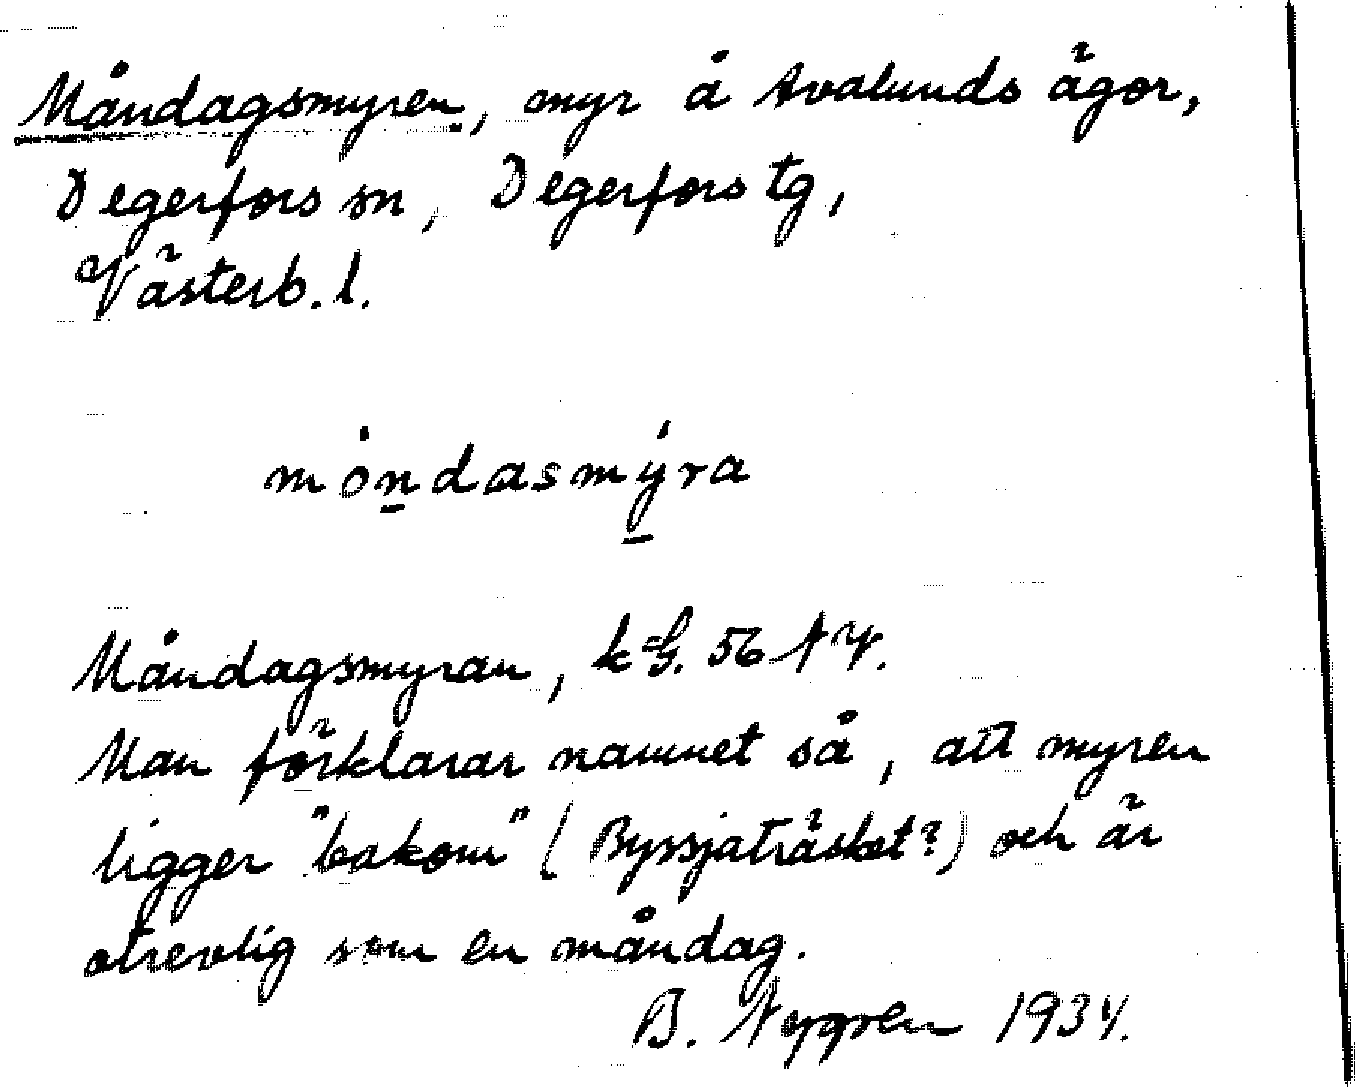 Måndagsmyren, myr å Avalunds ägor,
Degerfors sn, Degerfors tg,
Västerb. l.
móndasmýra
Måndagsmyran, k=G. 56
Man förklarar namnet så, att myren
ligger "bakom" (Byssjaträsket?) och är
otrevlig som en måndag.
B. Nygren 1934.